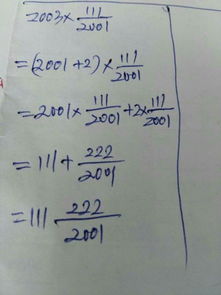 2003×111/2001
=(2001+2)×111/2001
=2001×111/2001+2×111/2001
=111+222/2001
=111 222/2001